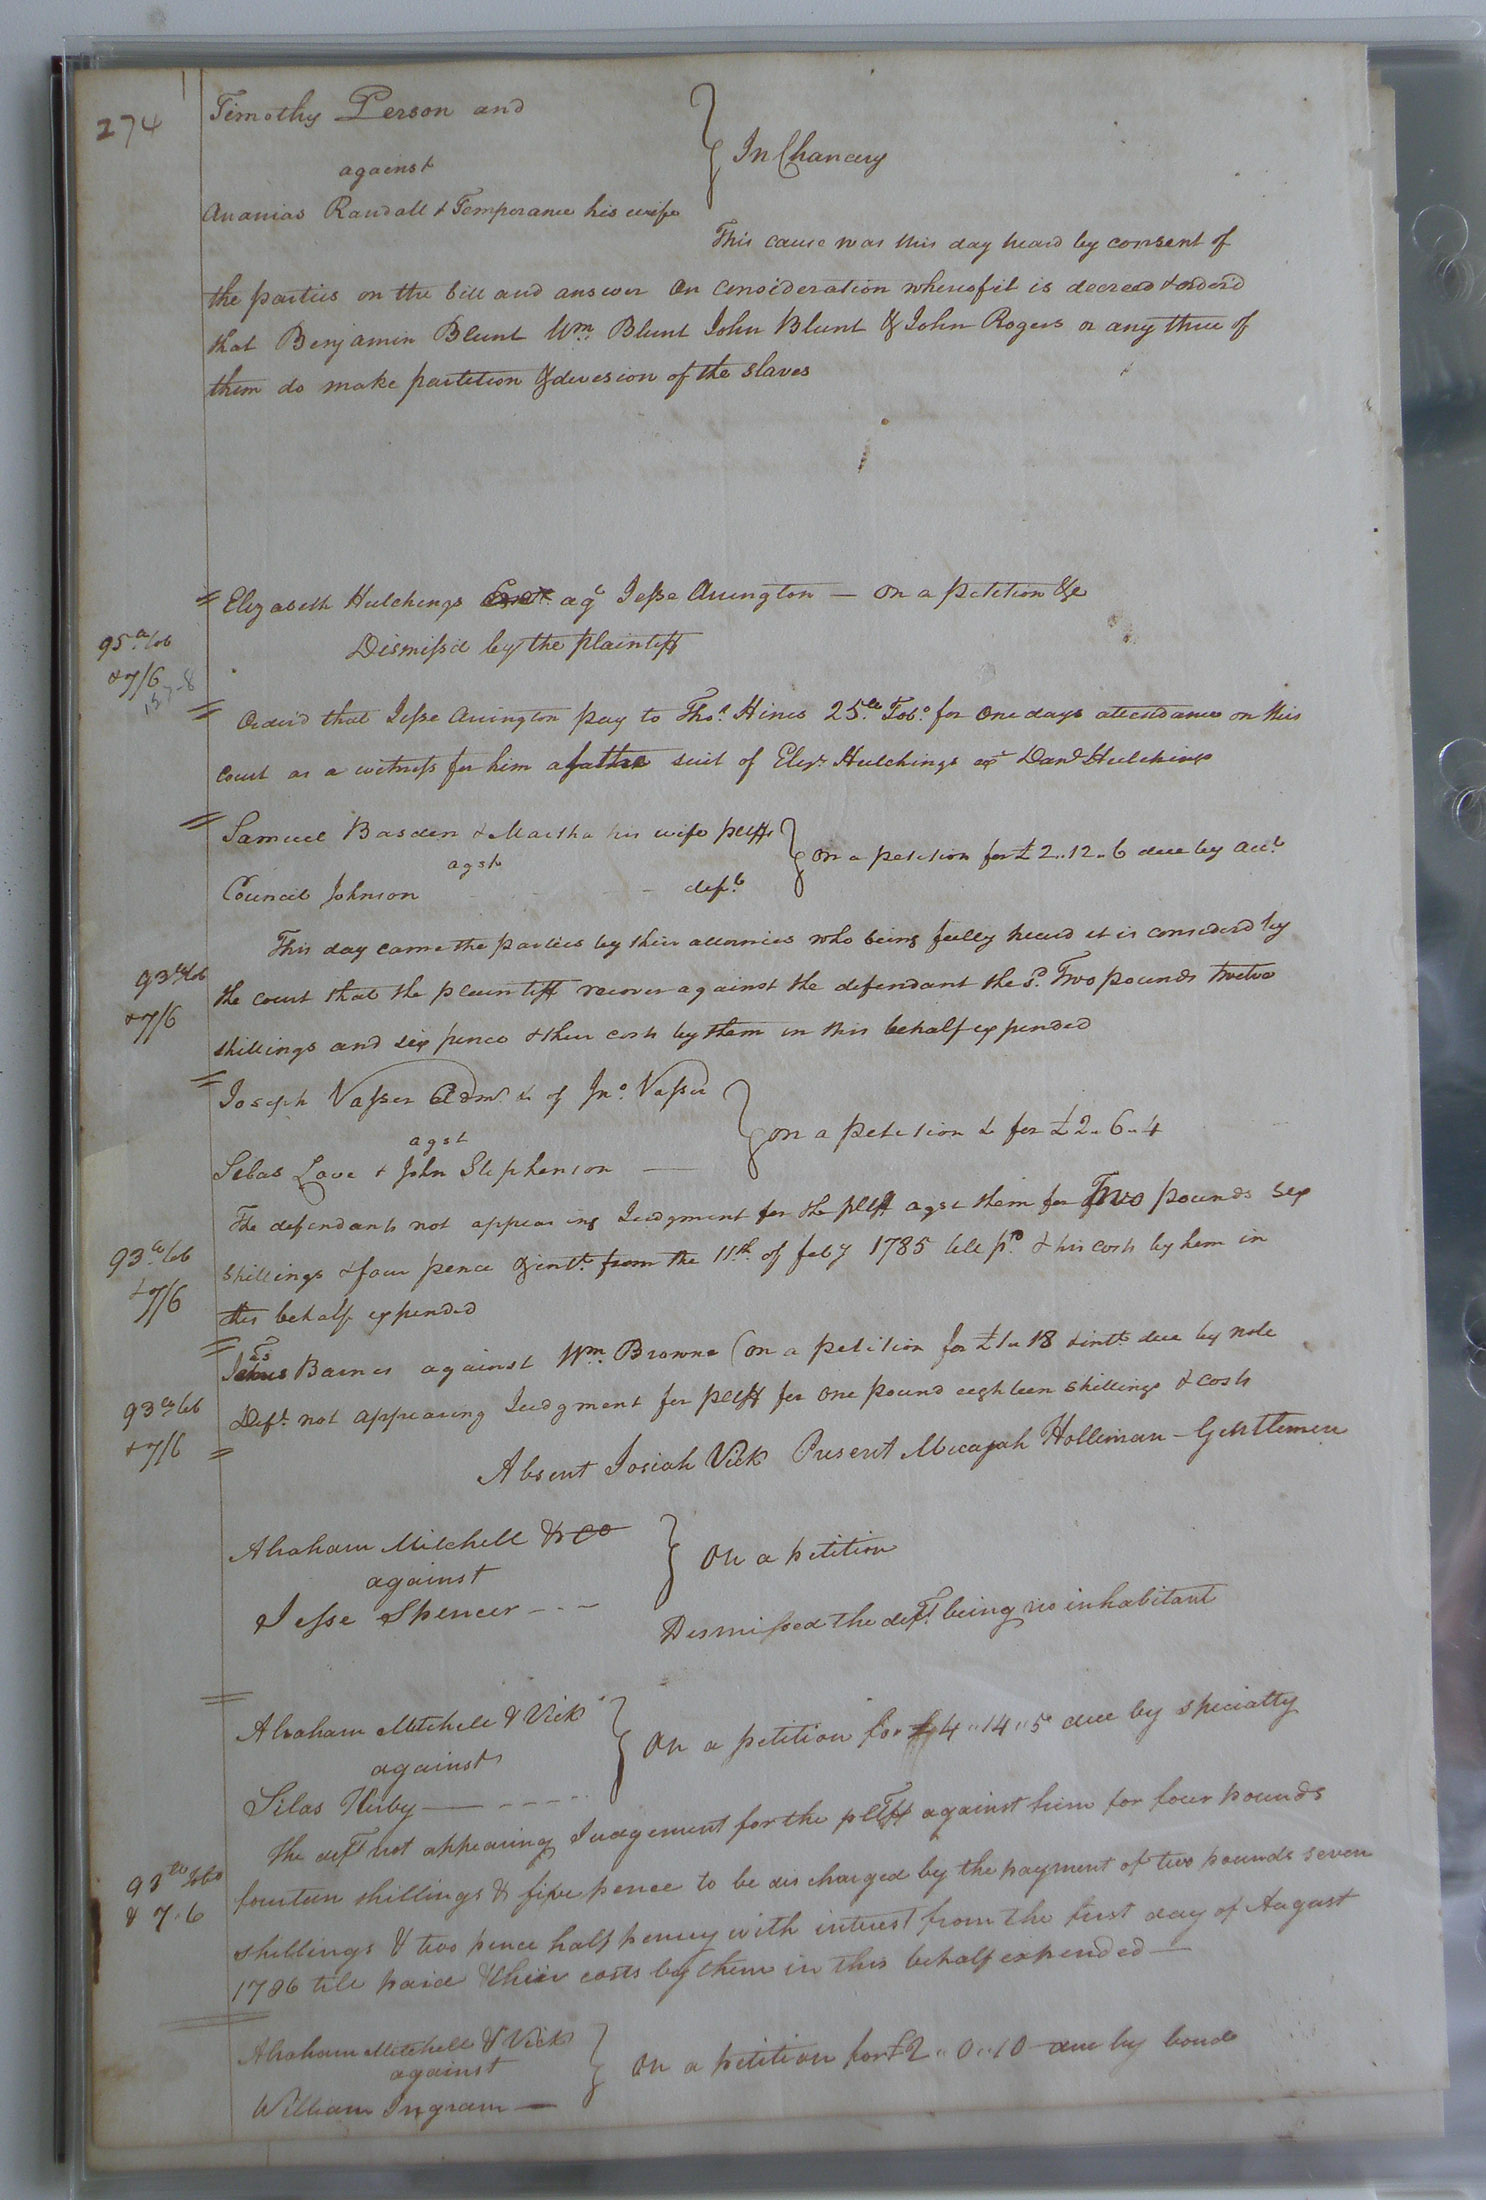 274
Timothy Person and
against
Ananias Randall & Temperance his wife
} In Chancery
This cause was this day heard by consent of
the parties on the bill and answer On consideration whereof it is decreed & orderd
that Benjamin Blunt Wm. Blunt John Blunt & John Rogers or any three of
them do make partition & devision of the slaves
Elizabeth Hutchings agt Jesse Arrington — on a petition &c
Dismissd by the plaintiff
95 lb tob
& 7/6
Orderd that Jesse Arrington pay to Thos. Hines 25 lb Tobo. for one days attendance on this
court as a witness for him at the suit of Elizr. Hutchings exr Danl Hutchings
Samuel Basden & Martha his wife pltffs
agst
Council Johnson - - - deft.
} on a petition for £2..12..6 due by acct.
This day came the parties by their attornies who being fully heard it is considerd by
93 lb tob
& 7/6
the court that the plaintiff recover against the defendant the sd. Two pounds twelve
shillings and six pence & their costs by them in this behalf expended
Joseph Vasser Admr. &c of Jno. Vasser
agst
Silas Love & John Stephenson —
} on a petition &c for £2..6..4
The defendants not appearing Judgment for the pltff agst them for Two pounds six
93 lb tob
& 7/6
shillings & four pence & intt. from the 11th. of feby 1785 till pd. & his costs by him in
this behalf expended
Barnes against Wm. Browne (on a petition for £1.. 18 & intt. due by note
93 lb tob
& 7/6
Deft. not appearing Judgment for pltff for one pound eighteen shillings & costs
Absent Josiah Vick Present Micajah Holliman - Gentlemen
Abraham Mitchell & Co
against
Jesse Spencer - - -
} On a petition
Dismissed the deft. being no inhabitant
Abraham Mitchell & Vick
against
Silas Kirby — - - - -
} On a petition for £4..14..5 due by specialty
The deft not appearing Judgement for the pltff against him for four pounds
93 lb tobo
& 7.6
fourteen shillings & five pence to be discharged by the payment of two pounds seven
shillings & two pence half penny with interest from the first day of August
1786 till paid & their costs by them in this behalf expended —
Abraham Mitchell & Vick
against
William Ingram —
} On a petition for £2..0..10 due by bond